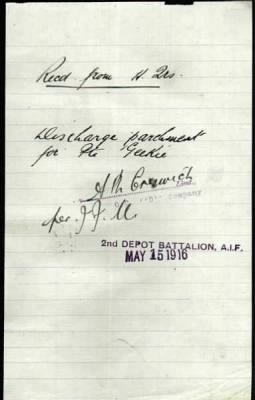 Recd from H Qrs.
Discharge parchment
for Pte Geekie
Lieut
Company
per.
2nd DEPOT BATTALION, A.I.F.
MAY 15 1916